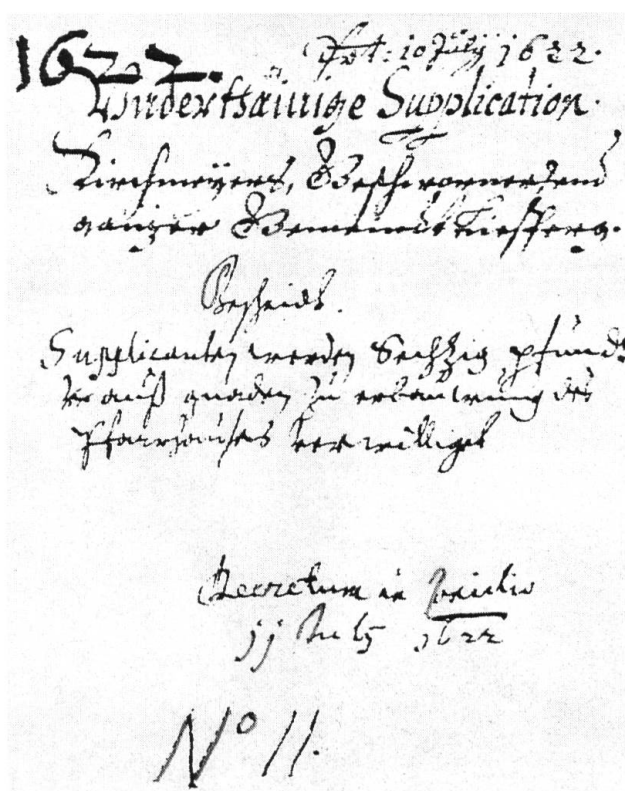 1622.
10 July 1622.
Underthänige Supplication.
Kirchmeyers, Geschwornen und
ganzer Gemeindt
Bescheidt.
Supplicanten werden Sechzig pfundt
auß gnaden zu erbauwung des
Pfarrhauses verwilliget
Decretum in
11 July 1622
No 11.